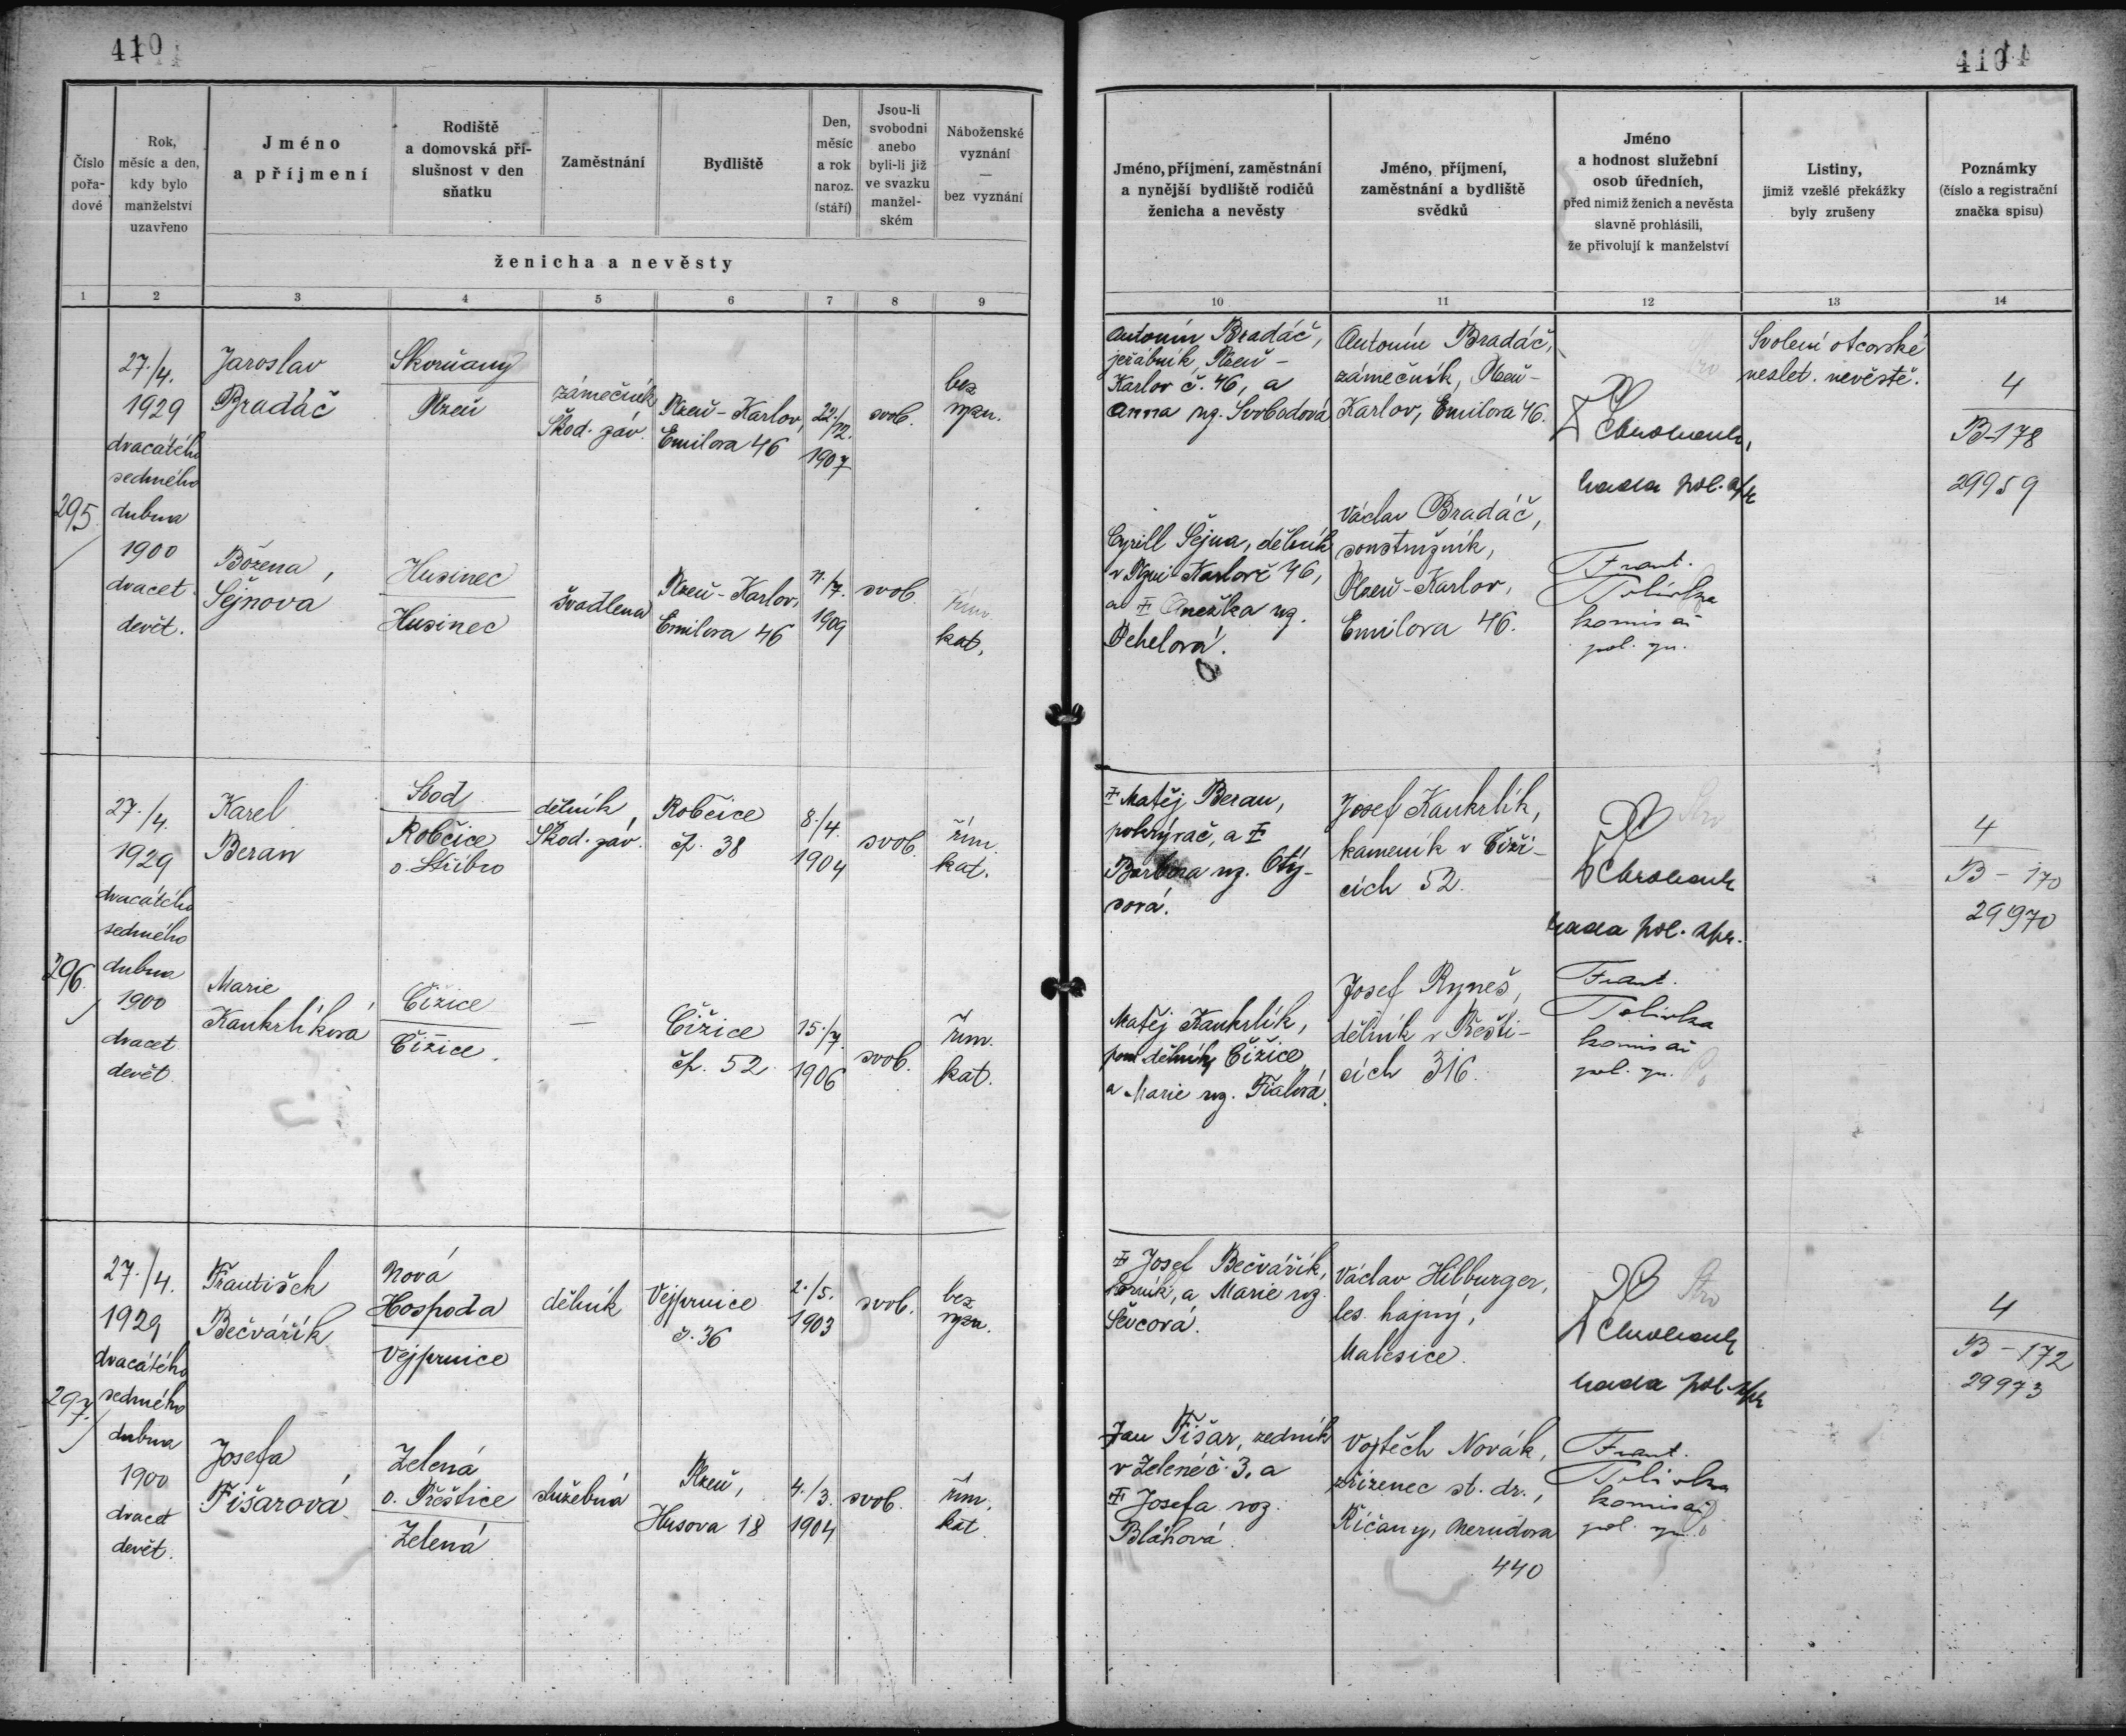 410
410
Číslo pořadové
Rok, měsíc a den, kdy bylo manželství uzavřeno
Jméno a příjmení
Rodiště a domovská příslušnost v den sňatku
Zaměstnání
Bydliště
Den, měsíc a rok naroz. (stáří)
Jsou-li svobodni anebo byli-li již ve svazku manželském
Náboženské vyznání — bez vyznání
ženicha a nevěsty
Jméno, příjmení, zaměstnání a nynější bydliště rodičů ženicha a nevěsty
Jméno, příjmení, zaměstnání a bydliště svědků
Jméno a hodnost služební osob úředních, před nimiž ženich a nevěsta slavně prohlásili, že přivolují k manželství
Listiny, jimiž vzešlé překážky byly zrušeny
Poznámky (číslo a registrační značka spisu)
1 2 3 4 5 6 7 8 9 10 11 12 13 14
295
27./4.
1929
dvacátého
sedmého
dubna
1900
dvacet
devět.
Jaroslav
Bradáč
Skvrňany
Plzeň
zámečník
Škod. záv.
Plzeň-Karlov,
Emilova 46
22./12.
1907
svob.
bez
vyzn.
Božena
Šejnova
Husinec
Husinec
švadlena
Plzeň-Karlov,
Emilova 46
11./7.
1909
svob.
řím.
kat.
Antonín Bradáč,
jeřábník, Plzeň-
Karlov č. 46, a
Anna rz. Svobodová
Cyrill Šejna, dělník
v Plzni-Karlově 46,
a Anežka rz.
Pehelová.
Antonín Bradáč,
zámečník, Plzeň-
Karlov, Emilova 46.
Václav Bradáč,
soustružník,
Plzeň-Karlov,
Emilova 46.
rada pol. spr.
Frant.
Polívka
komisař
pol. spr.
Svolení otcovské
neslet. nevěstě.
4
B-178
29959
296.
27./4.
1929
dvacátého
sedmého
dubna
1900
dvacet
devět.
Karel
Beran
Stod
Robčice
o. Stříbro
dělník,
Škod. záv.
Robčice
čp. 38
8./4.
1904
svob.
řím.
kat.
Marie
Kaukrlíková
Čižice
Čižice.
—
Čižice
čp. 52.
15./7.
1906
svob.
řím.
kat.
Matěj Beran,
pokrývač, a
Barbora rz. Oty-
sová.
Matěj Kaukrlík,
dělník, Čižice
a Marie rz. Fialová.
Josef Kaukrlík,
kameník v Čiži-
cích 52.
Josef Ryneš,
dělník v Přešti-
cích 316.
rada pol. spr.
Frant.
Polívka
komisař
pol. spr.
4
B-170
29970
297.
27./4.
1929
dvacátého
sedmého
dubna
1900
dvacet
devět.
František
Bečvářík
Nová
Hospoda
Vejprnice
dělník
Vejprnice
č. 36
2./5.
1903
svob.
bez
vyzn.
Josefa
Fišarová
Zelená
o. Přeštice
Zelená
služebná
Plzeň,
Husova 18
4./3.
1904
svob.
řím.
kat.
Josef Bečvářík,
horník, a Marie roz.
Ševcová.
Jan Fišar, zedník
v Zelené č. 3. a
Josefa roz.
Bláhová.
Václav Hilburger,
les. hajný,
Malesice.
Vojtěch Novák,
zřízenec st. dr.,
Říčany, Nerudova
440
rada pol. spr.
Frant.
Polívka
komisař
pol. spr.
4
B-172
29973